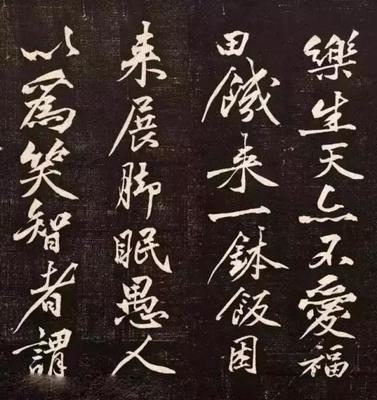 樂生天亦不愛福
田饑来一鉢飯困
来展脚眠愚人
以爲笑智者謂